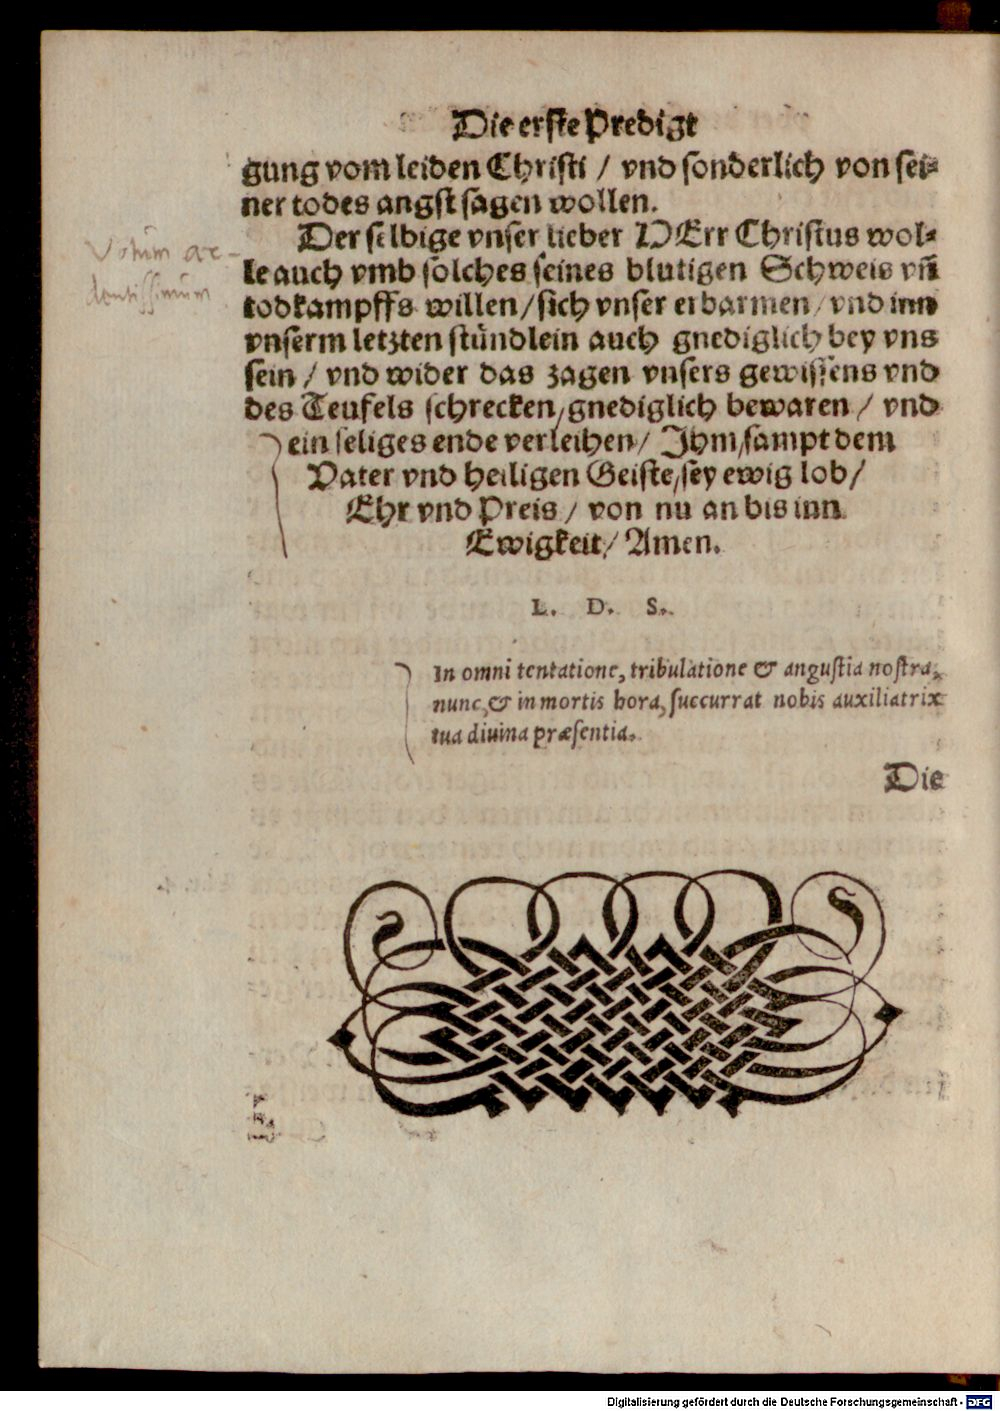 Die erste Predigt
gung vom leiden Christi / vnd sonderlich von sei⸗
ner todes angst sagen wollen.
Der selbige vnser lieber HErr Christus wol⸗
le auch vmb solches seines blutigen Schweis vñ
todkampffs willen / sich vnser erbarmen / vnd inn
vnserm letzten stündlein auch gnediglich bey vns
sein / vnd wider das zagen vnsers gewissens vnd
des Teufels schrecken / gnediglich bewaren / vnd
ein seliges ende verleihen / Ihm / sampt dem
Vater vnd heiligen Geiste / sey ewig lob /
Ehr vnd Preis / von nu an bis inn
Ewigkeit / Amen.
Votum ar-
dentissimum
L. D. S.
In omni tentatione, tribulatione & angustia nostra,
nunc, & in mortis hora, succurrat nobis auxiliatrix
tua diuina præsentia.
Die
Digitalisierung gefördert durch die Deutsche Forschungsgemeinschaft - DFG